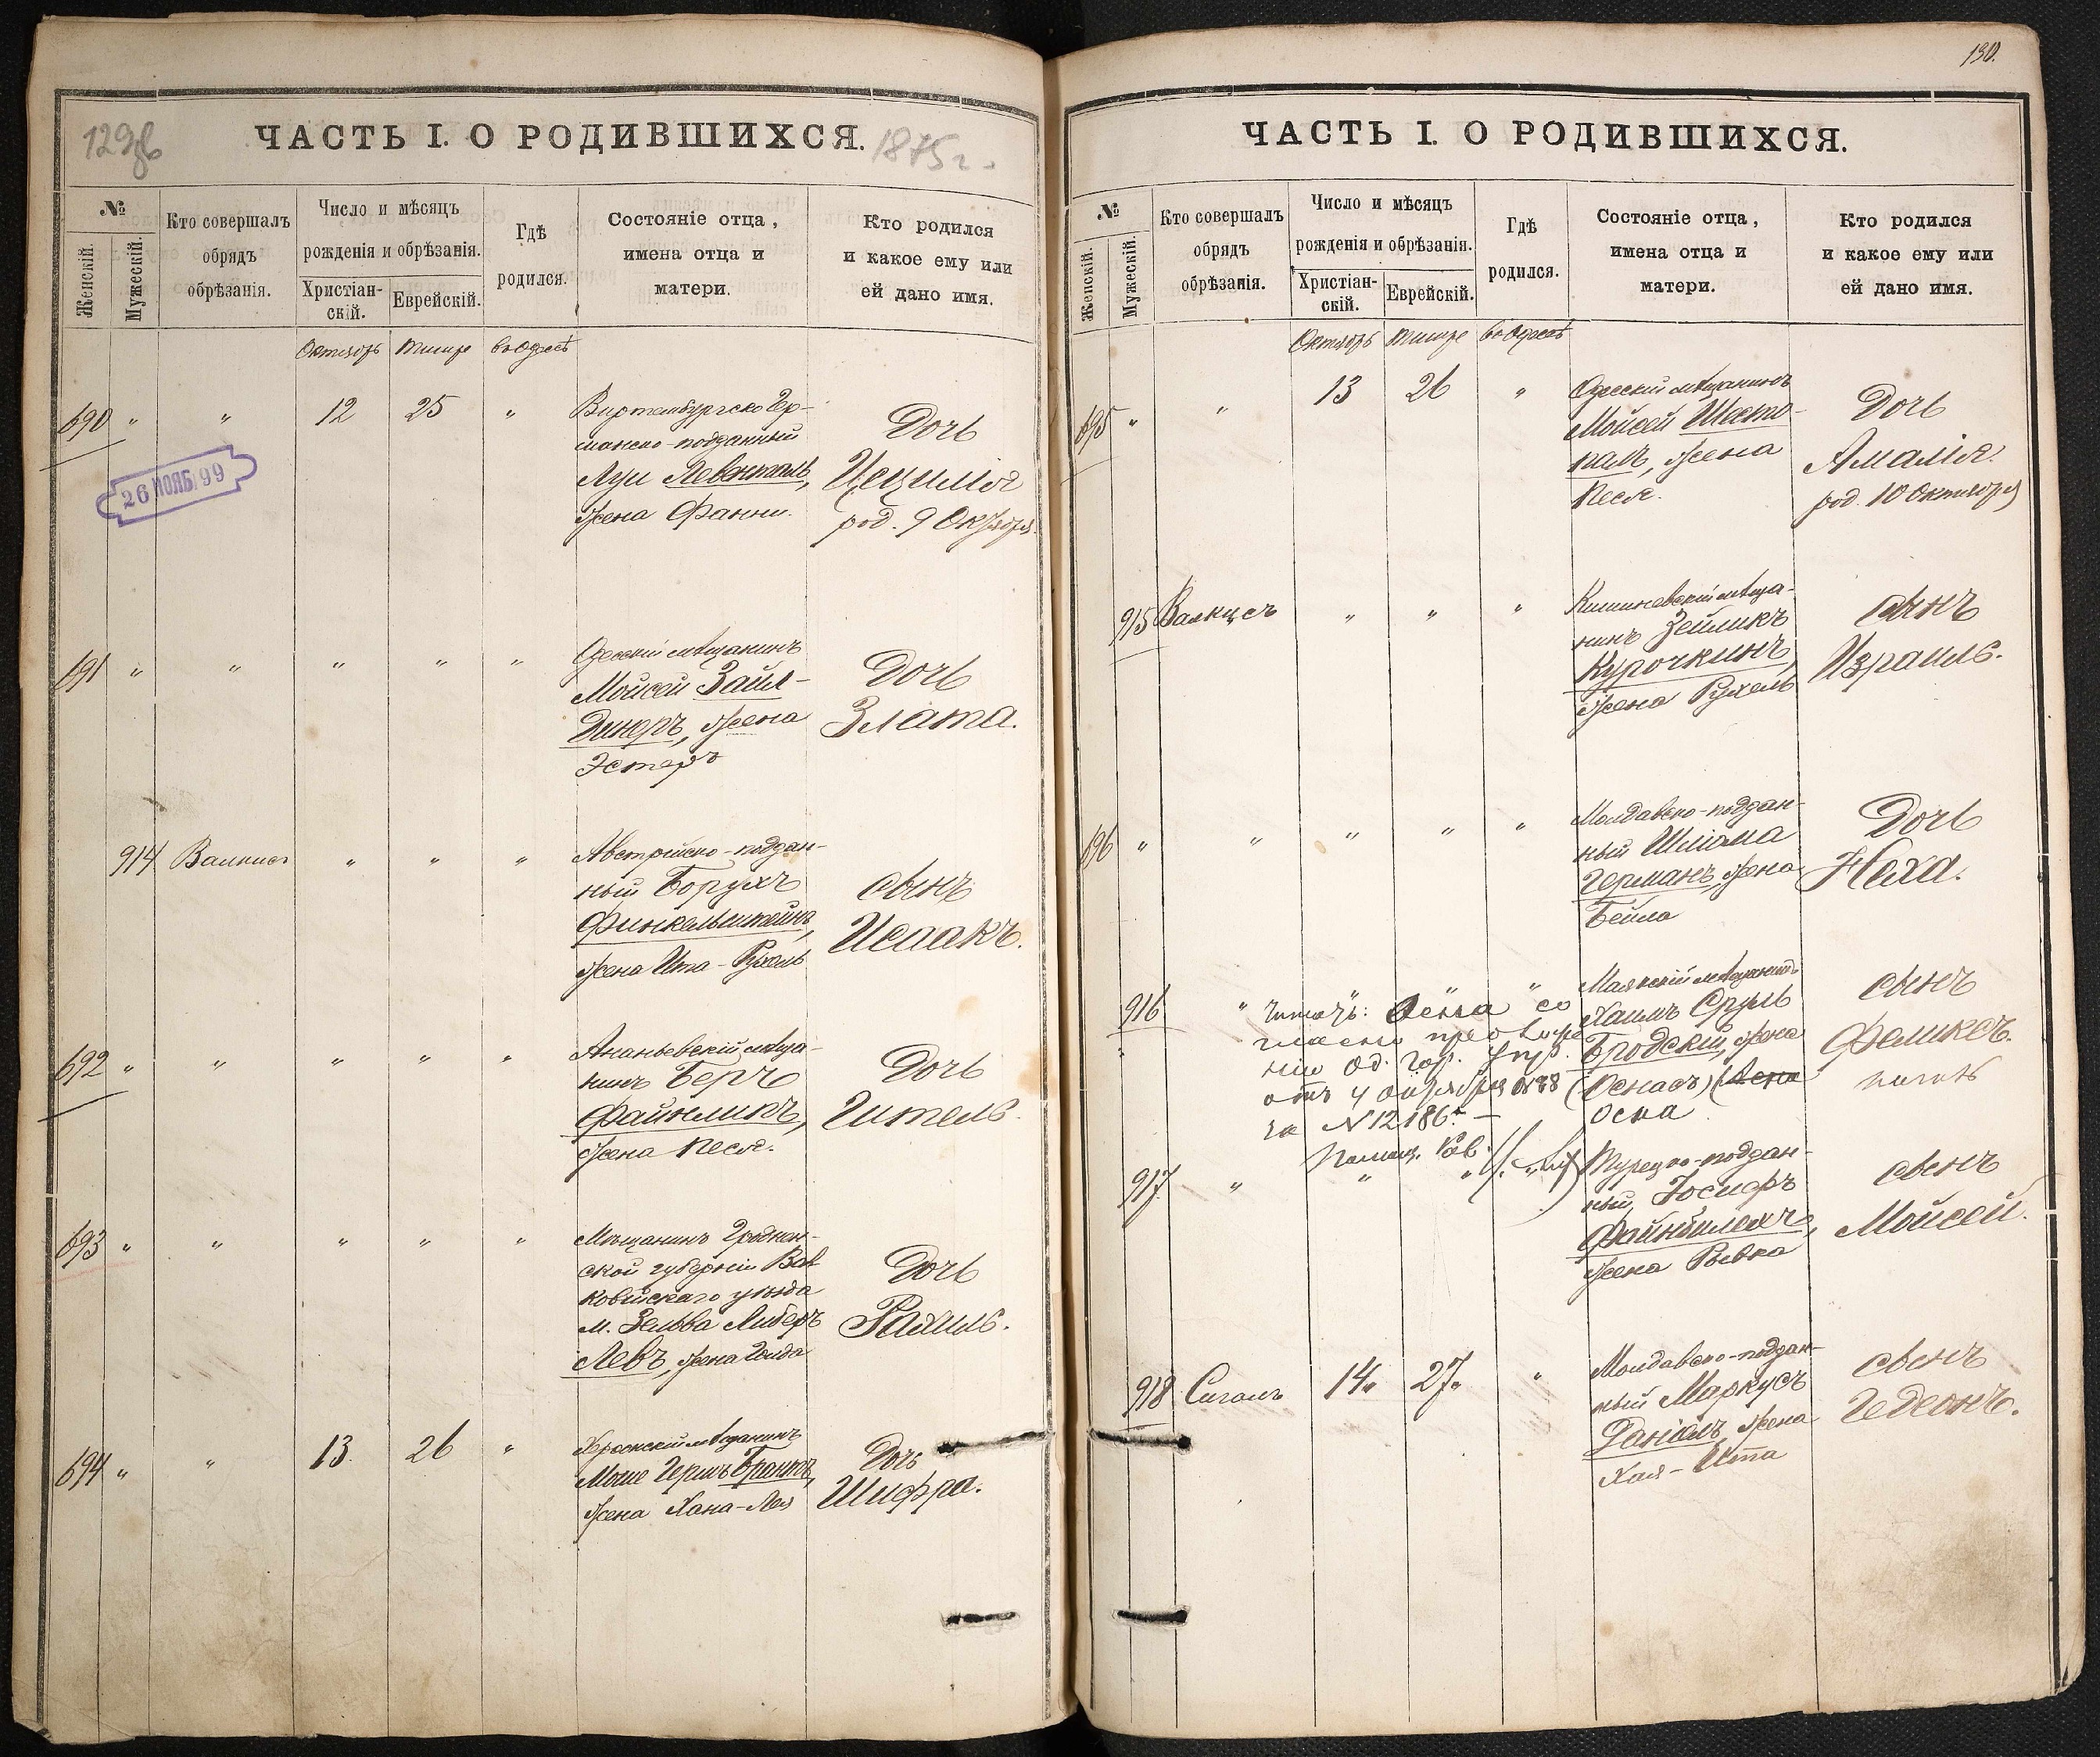 129об
ЧАСТЬ I. О РОДИВШИХСЯ.
1875 г.
№
Женскій.
Мужескій.
Кто совершалъ
обрядъ
обрѣзанія.
Число и мѣсяцъ
рожденія и обрѣзанія.
Христіан-
скій.
Еврейскій.
Гдѣ
родился.
Состояніе отца,
имена отца и
матери.
Кто родился
и какое ему или
ей дано имя.
Октябрь Тишре въ Одессѣ
690 " " 12 25 "
Виртембургско Гер-
манско-подданный
Луи Левенталь,
жена Фанни.
Дочь
Цецилія
род. 9 Октября
26 НОЯБ. 99
691 " " " " "
Одесскій мѣщанинъ
Мойсей Зайл-
динеръ, жена
Эстеръ
Дочь
Злата.
914 Валкисъ " " "
Австрійско-поддан-
ный Борухъ
Финкельштейнъ,
жена Ита-Рухель
сынъ
Исаакъ.
692 " " " " "
Ананьевскій мѣща-
нинъ Беръ
Файнлихъ,
жена Песя.
Дочь
Гитель.
693 " " " " "
Мѣщанинъ Гроднен-
ской губерніи Вол
ковійскаго уѣзда
м. Зельва Либеръ
Левъ, жена Голда
Дочь
Рахиль.
694 " " 13. 26 "
Херсонскій мѣщанинъ
Моше Гершъ
жена Хана-Лея
Дочь
Шифра.
130.
ЧАСТЬ I. О РОДИВШИХСЯ.
№
Женскій.
Мужескій.
Кто совершалъ
обрядъ
обрѣзанія.
Число и мѣсяцъ
рожденія и обрѣзанія.
Христіан-
скій.
Еврейскій.
Гдѣ
родился.
Состояніе отца,
имена отца и
матери.
Кто родился
и какое ему или
ей дано имя.
Октябрь Тишре въ Одессѣ
695 " " 13 26 "
Одесскій мѣщанинъ
Мойсей Шесто-
палъ, жена
Песя.
Дочь
Амалія.
род. 10 Октября
915 Валкусъ " " "
Кишиневскій мѣща-
нинъ Зейликъ
Курочкинъ,
жена Рухель
сынъ
Израиль.
696 " " " " "
Молдавско-поддан-
ный Шліома
Германъ, жена
Бейла
Дочь
Неха.
916 "
читать: со
гласно
нію Од. Гор. Упр.
отъ 4 1888
за N 12186. —
Помощ. Рав.
Маякскій мѣщанинъ
Хаимъ Сруль
Бродскій, жена
сынъ
Феликсъ.
917 " " "
Турецко-поддан-
ный Іосифъ
жена Ривка
сынъ
Мойсей.
918 Сигалъ 14" 27" "
Молдавско-поддан-
ный Маркусъ
Даніэлъ, жена
Хая-Итта
сынъ
Гедеонъ.